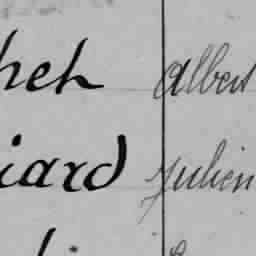 heh albert
iard julien